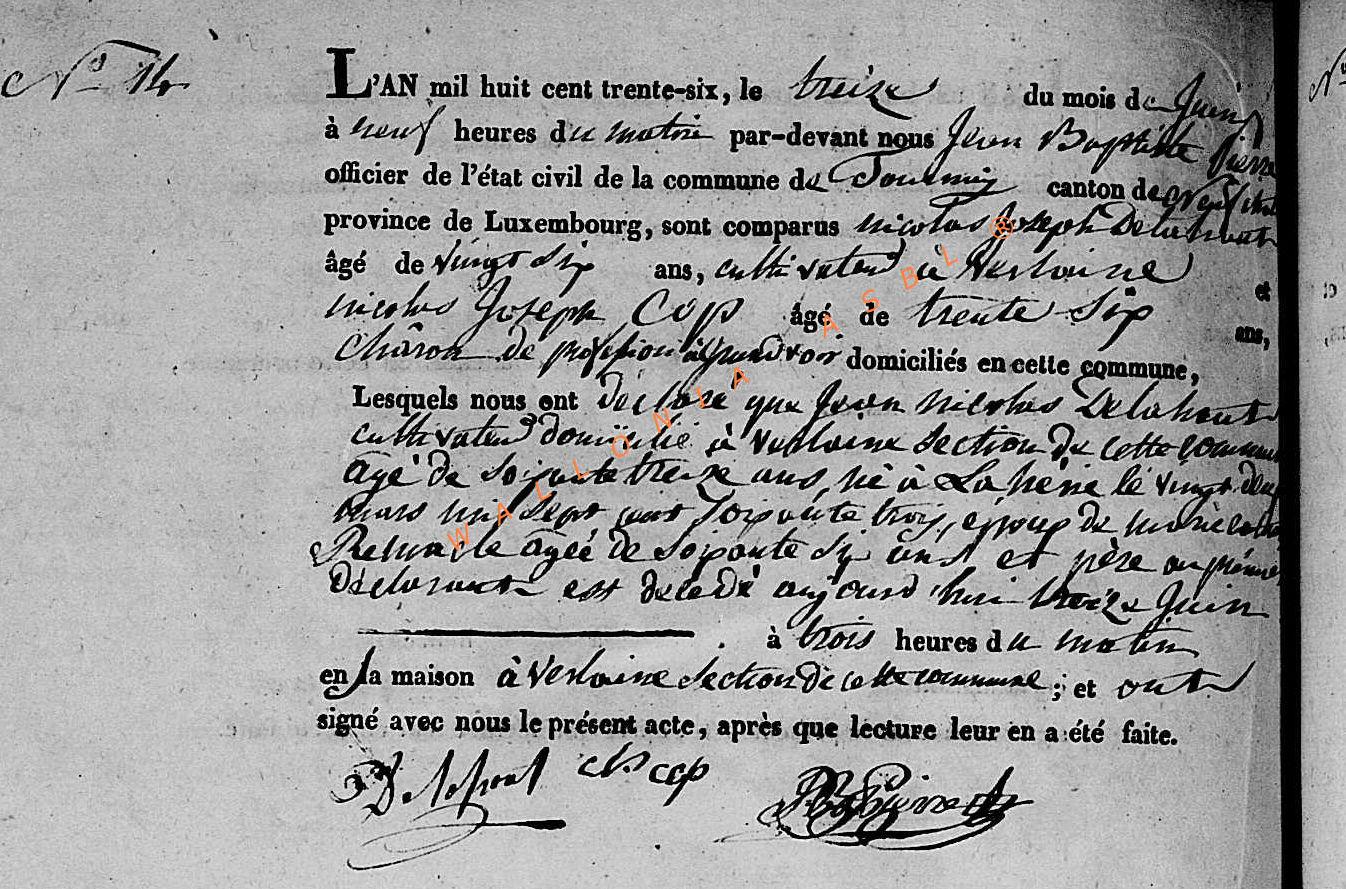 N° 14
L'AN mil huit cent trente-six, le treize du mois de Juin
à neuf heures du matin par-devant nous Jean Baptiste Pierre
officier de l'état civil de la commune de Tournay canton de Neuf
province de Luxembourg, sont comparus nicolas Joseph Delahaut
âgé de vingt six ans, cultivateur à Verlaine et
nicolas Joseph Cop âgé de trente six ans,
Charon de profession à grandvoir domiciliés en cette commune,
Lesquels nous ont déclaré que Jean nicolas Delahaut
cultivateur domicilié à Verlaine section de cette commune
agé de soixante treize ans, né à Lahérie le vingt deux
mars mil sept cent soixante trois, epoux de marie
agée de soixante six ans et père au premier
déclarant est décédé aujourd'hui treize Juin
à trois heures du matin
en sa maison à Verlaine section de cette commune; et ont
signé avec nous le présent acte, après que lecture leur en a été faite.
Delahaut Ch cop JB Pierre
WALLONIA ASBL ®